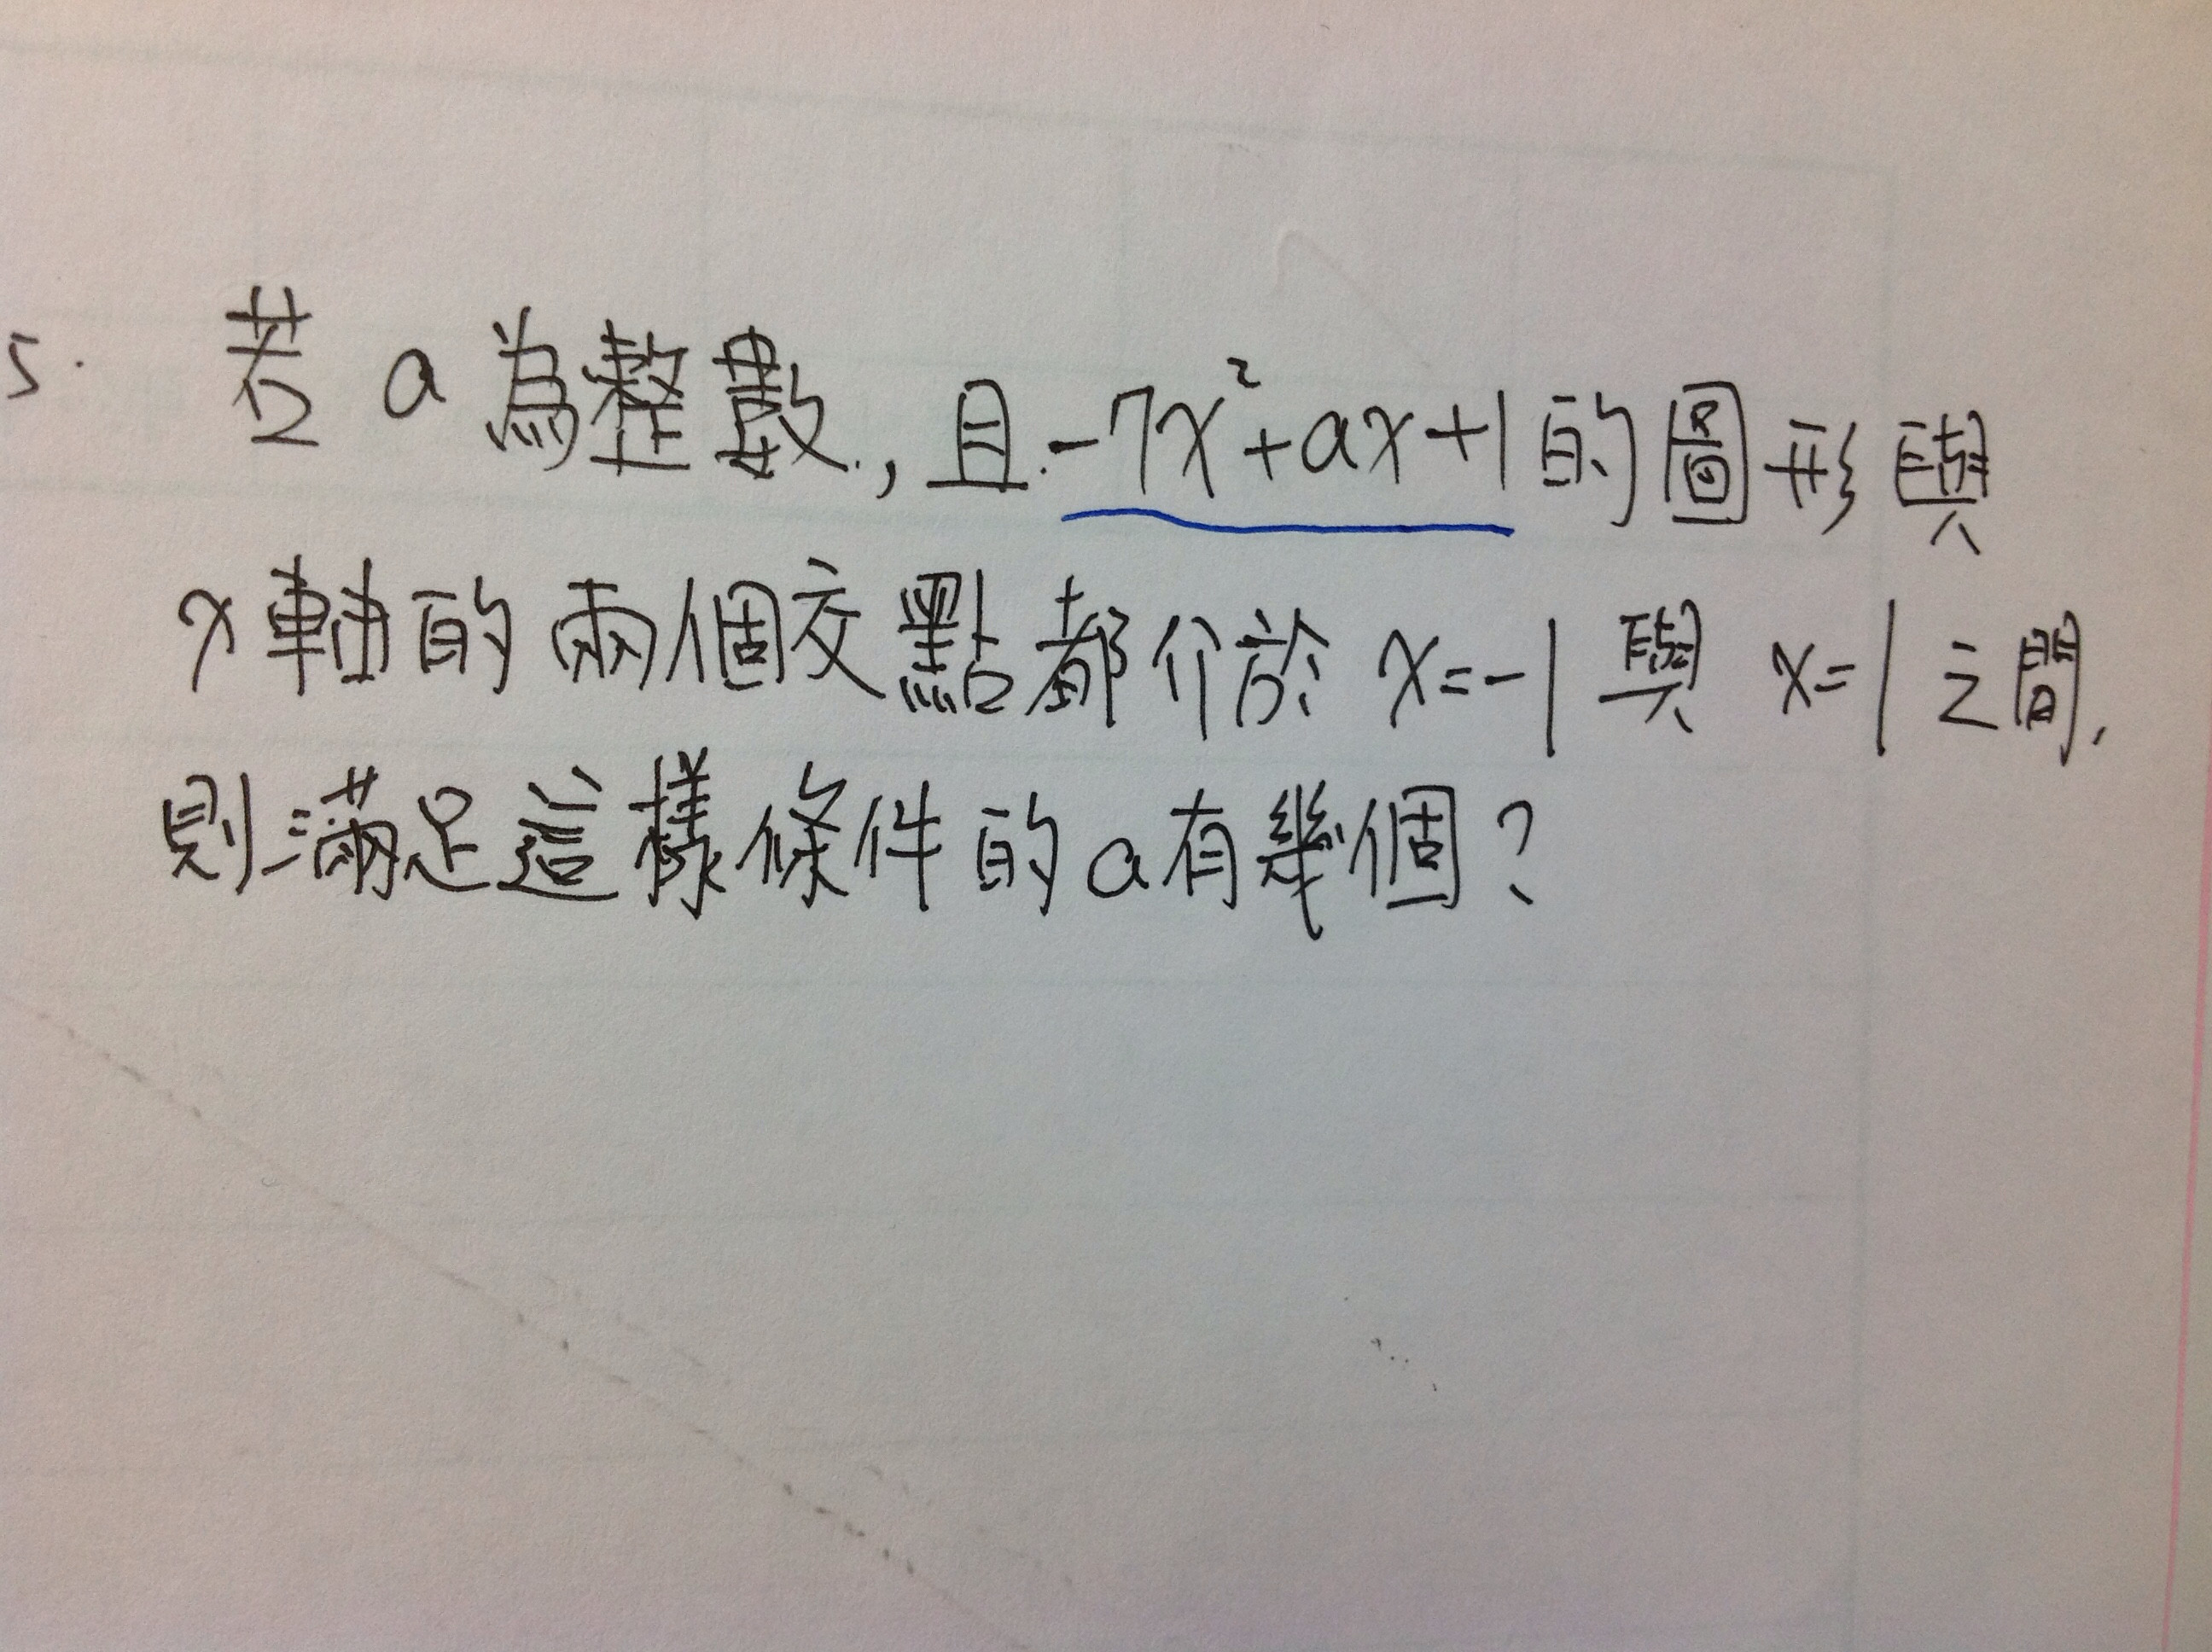 5. 若a為整數, 且-7x²+ax+1的圖形與
x軸的兩個交點都介於x=-1與x=1之間,
則滿足這樣條件的a有幾個?